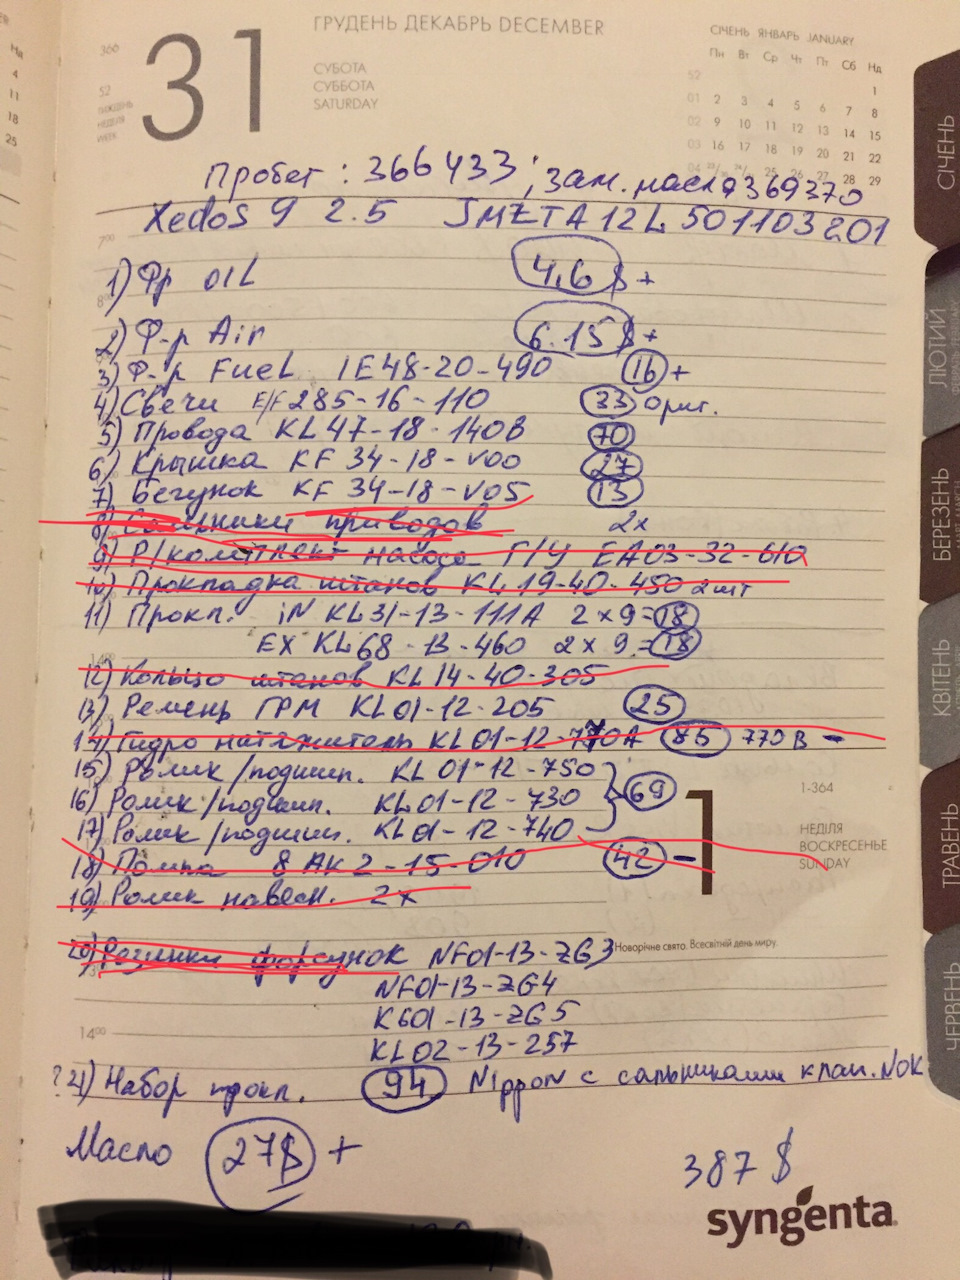 ГРУДЕНЬ ДЕКАБРЬ DECEMBER
31
366
СУБОТА
СУББОТА
SATURDAY
52
ТИЖДЕНЬ
НЕДЕЛЯ
WEEK
СІЧЕНЬ ЯНВАРЬ JANUARY
Пн Вт Ср Чт Пт Сб Нд
52 1
01 2 3 4 5 6 7 8
02 9 10 11 12 13 14 15
03 16 17 18 19 20 21 22
04 23/30 24/31 25 26 27 28 29
Нд
4
11
18
25
Пробег: 366433; зам. масла 369370
Xedos 9 2.5 JMZTA12L501103201
700
1) Фр OIL 4,6$ +
800
2) Ф-р Air 6.15$ +
3) Ф-р Fuel 1E48-20-490 16 +
4) Свечи E/F 285-16-110 33 ориг.
5) Провода KL47-18-140B 70
6) Крышка KF 34-18-V00 27
7) Бегунок KF 34-18-V05 13
8) Сальники приводов 2x
9) Р/комплект насоса Г/У EA03-32-610
10) Прокладка штанов KL19-40-450 2шт
11) Прокл. iN KL31-13-111A 2x9=18
EX KL68-13-460 2x9=18
1400
12) Кольцо штанов KL14-40-305
13) Ремень ГРМ KL01-12-205 25
14) Гидро натяжитель KL01-12-770A 85 770B -
15) Ролик/подшип. KL01-12-750
16) Ролик/подшип. KL01-12-730 69
17) Ролик/подшип. KL01-12-740
18) Помпа 8AK2-15-010 42 -
19) Ролик навесн. 2x
1
1-364
НЕДІЛЯ
ВОСКРЕСЕНЬЕ
SUNDAY
Новорічне свято. Всесвітній день миру.
20) Резинки форсунок NF01-13-ZG3
NF01-13-ZG4
1400
K601-13-ZG5
KL02-13-257
?21) Набор прокл. 94 Nippon с сальниками клап. NOK
Масло 27$ +
387$
syngenta
СІЧЕНЬ
ЛЮТИЙ
БЕРЕЗЕНЬ
КВІТЕНЬ
ТРАВЕНЬ
ЧЕРВЕНЬ